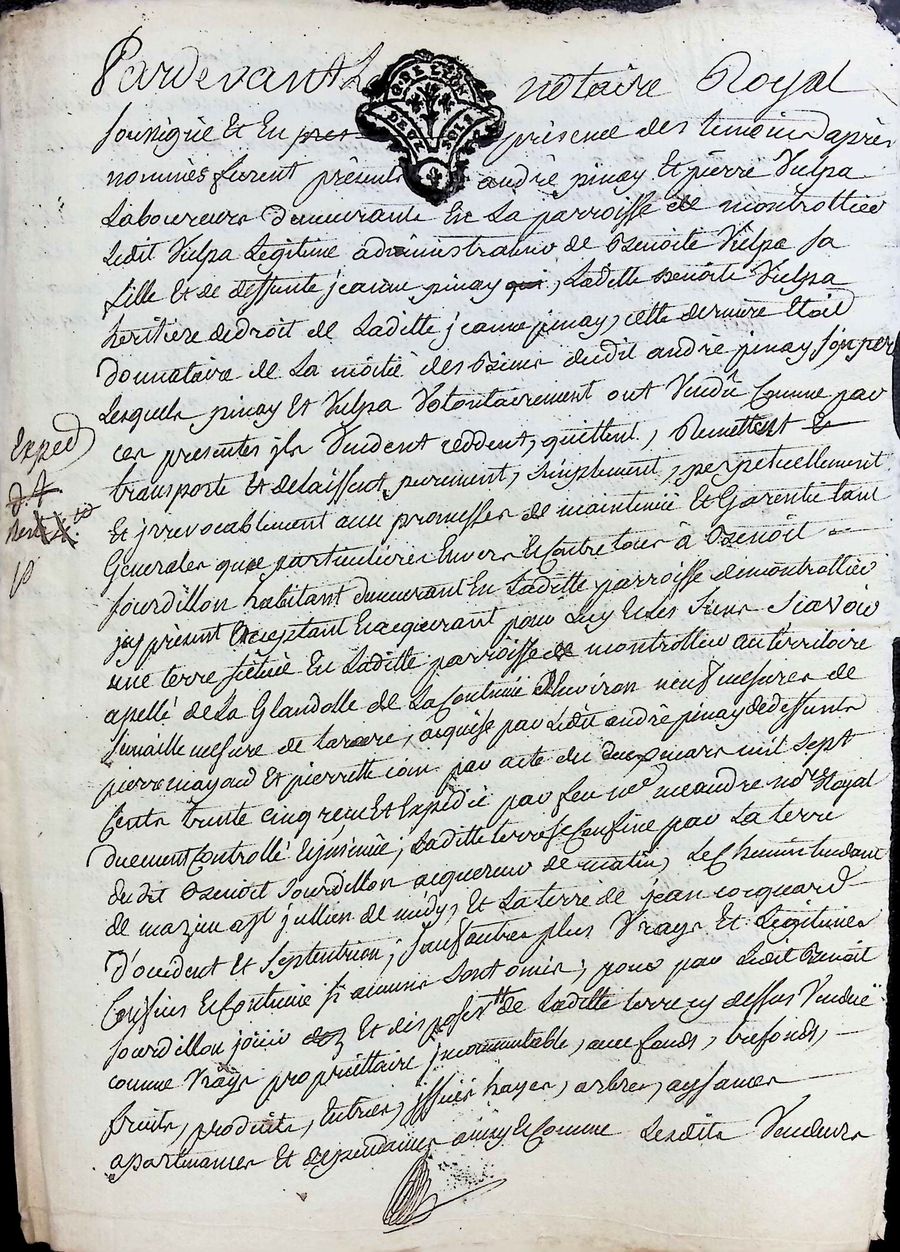 Pardevant Le notaire Royal
GNE LYON
DEUX SOLS
soussigné et En pres présence des temoins après
nommés furent présents andré pinay Et pierre Vulpa
Laboureurs demeurants En La parroisse de montrottier
Ledit Vulpa Legitime administrateur de Benoite Vulpa sa
fille Et de deffunte jeanne pinay qui, Laditte Benoite Vulpa
heritiere de droit de Laditte jeanne pinay, cette derniere Etoit
donnataire de La moitié des Biens dudit andré pinay son per
Lesquels pinay Et Vulpa Volontairement ont Vendu Comme par
ces presentes ils Vendent cèddent, quittent, Remettent
Exped
transporte Et delaissent purement, simplement, perpetuellement
Et jrrevocablement aux promesses de maintenüe Et Garentie tant
Generales que particulieres Envers Et Contre tous à Benoit
sourdillon habitant demeurant En Laditte parroisse de montrottier
jcy présent acceptant Et acquerant pour Luy Et Les Siens Sçavoir
une terre sitüée En Laditte parroisse de montrottier au territoire
apellé de La Glandolle de La Contenüe d'Environ neuf mesures de
semaille mesure de tarare, acquise par Ledit andré pinay de deffunts
pierre mayoud Et pierrette par acte du mars mil sept
Cents trente cinq reçu Et Expédié par feu me meandre nore Royal
duement Controllé Et jnsinüé; Laditte terre se Confine par La terre
dudit Benoit sourdillon acquereur de matin, Le Chemin tendant
de st jullien de midy, Et La terre de jean cocquard
d'occident Et Septentrion; sauf autres plus Vrays Et Legitimes
Confins Et Contenüe si aucuns sont omis; pour par Ledit Benoit
sourdillon joüir Et disposer de Laditte terre cy dessus Vendüe
comme Vray proprietaire jncommutable, avec fonds, trefonds,
fruits, produits, Entrées, jssües hayes, arbres, aysances
apartenances Et dependances ainsy Et Comme Lesdits Vendeurs